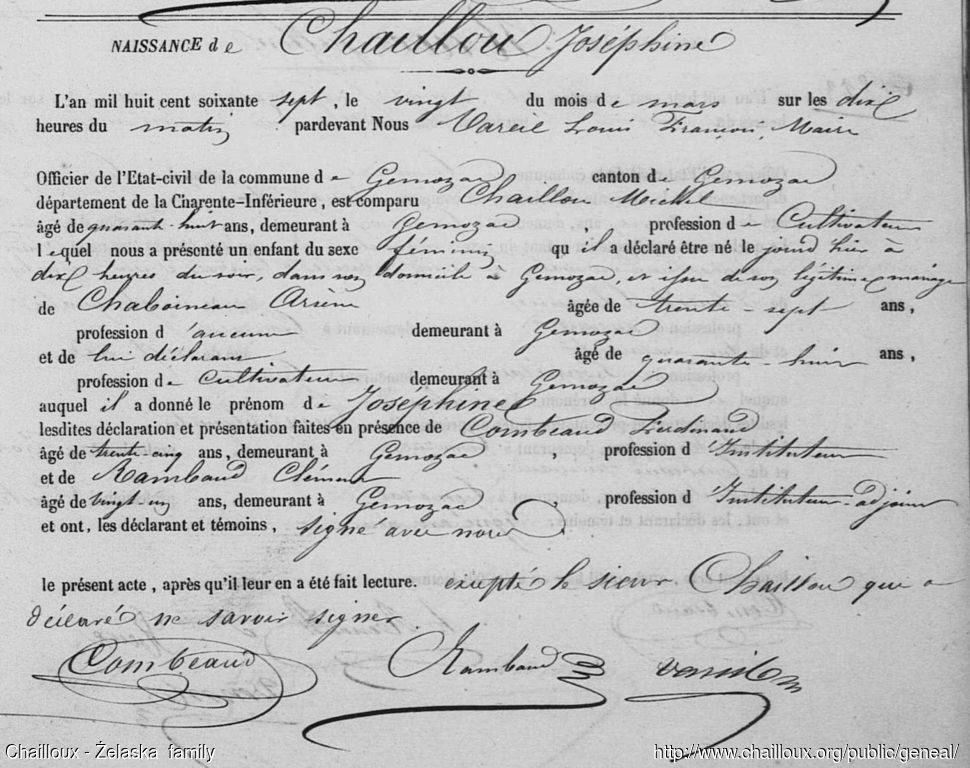 NAISSANCE de Chaillou Joséphine
L'an mil huit cent soixante sept, le vingt du mois de mars sur les dix
heures du matin pardevant Nous Vareil Louis François, Maire
Officier de l'Etat-civil de la commune de Gemozac canton de Gemozac
département de la Charente-Inférieure, est comparu Chaillou Michel
âgé de quarant-huit ans, demeurant à Gemozac profession de Cultivateur
lequel nous a présenté un enfant du sexe féminin qu'il a déclaré être né le jourd hier à
dix heures du soir, dans son domicile à Gemozac, et issu de son légitime mariage
de Chaboineau Arsène âgée de trente-sept ans,
profession d'aucune demeurant à Gemozac
et de lui déclarant âgé de quarante-huit ans,
profession de cultivateur demeurant à Gemozac
auquel il a donné le prénom de Joséphine
lesdites déclaration et présentation faites en présence de Combeaud Ferdinand
âgé de trente-cinq ans, demeurant à Gemozac profession d'Instituteur
et de Rambaud Clément
âgé de vingt-un ans, demeurant à Gemozac profession d'Instituteur-adjoint
et ont, les déclarant et témoins, signé avec nous
le présent acte, après qu'il leur en a été fait lecture. excepté le sieur Chaillou qui a
déclaré ne savoir signer
Combeaud Rambaud
Chailloux - Żelaska family http://www.chailloux.org/public/geneal/